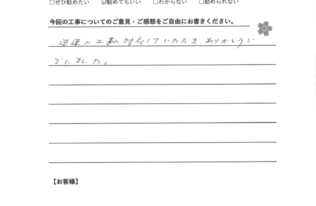 □ぜひ勧めたい ☑勧めてもいい □わからない □勧められない
今回の工事についてのご意見・ご感想をご自由にお書きください。
迅速に工事対応していただき、ありがとうご
ざいました。
【お客様】